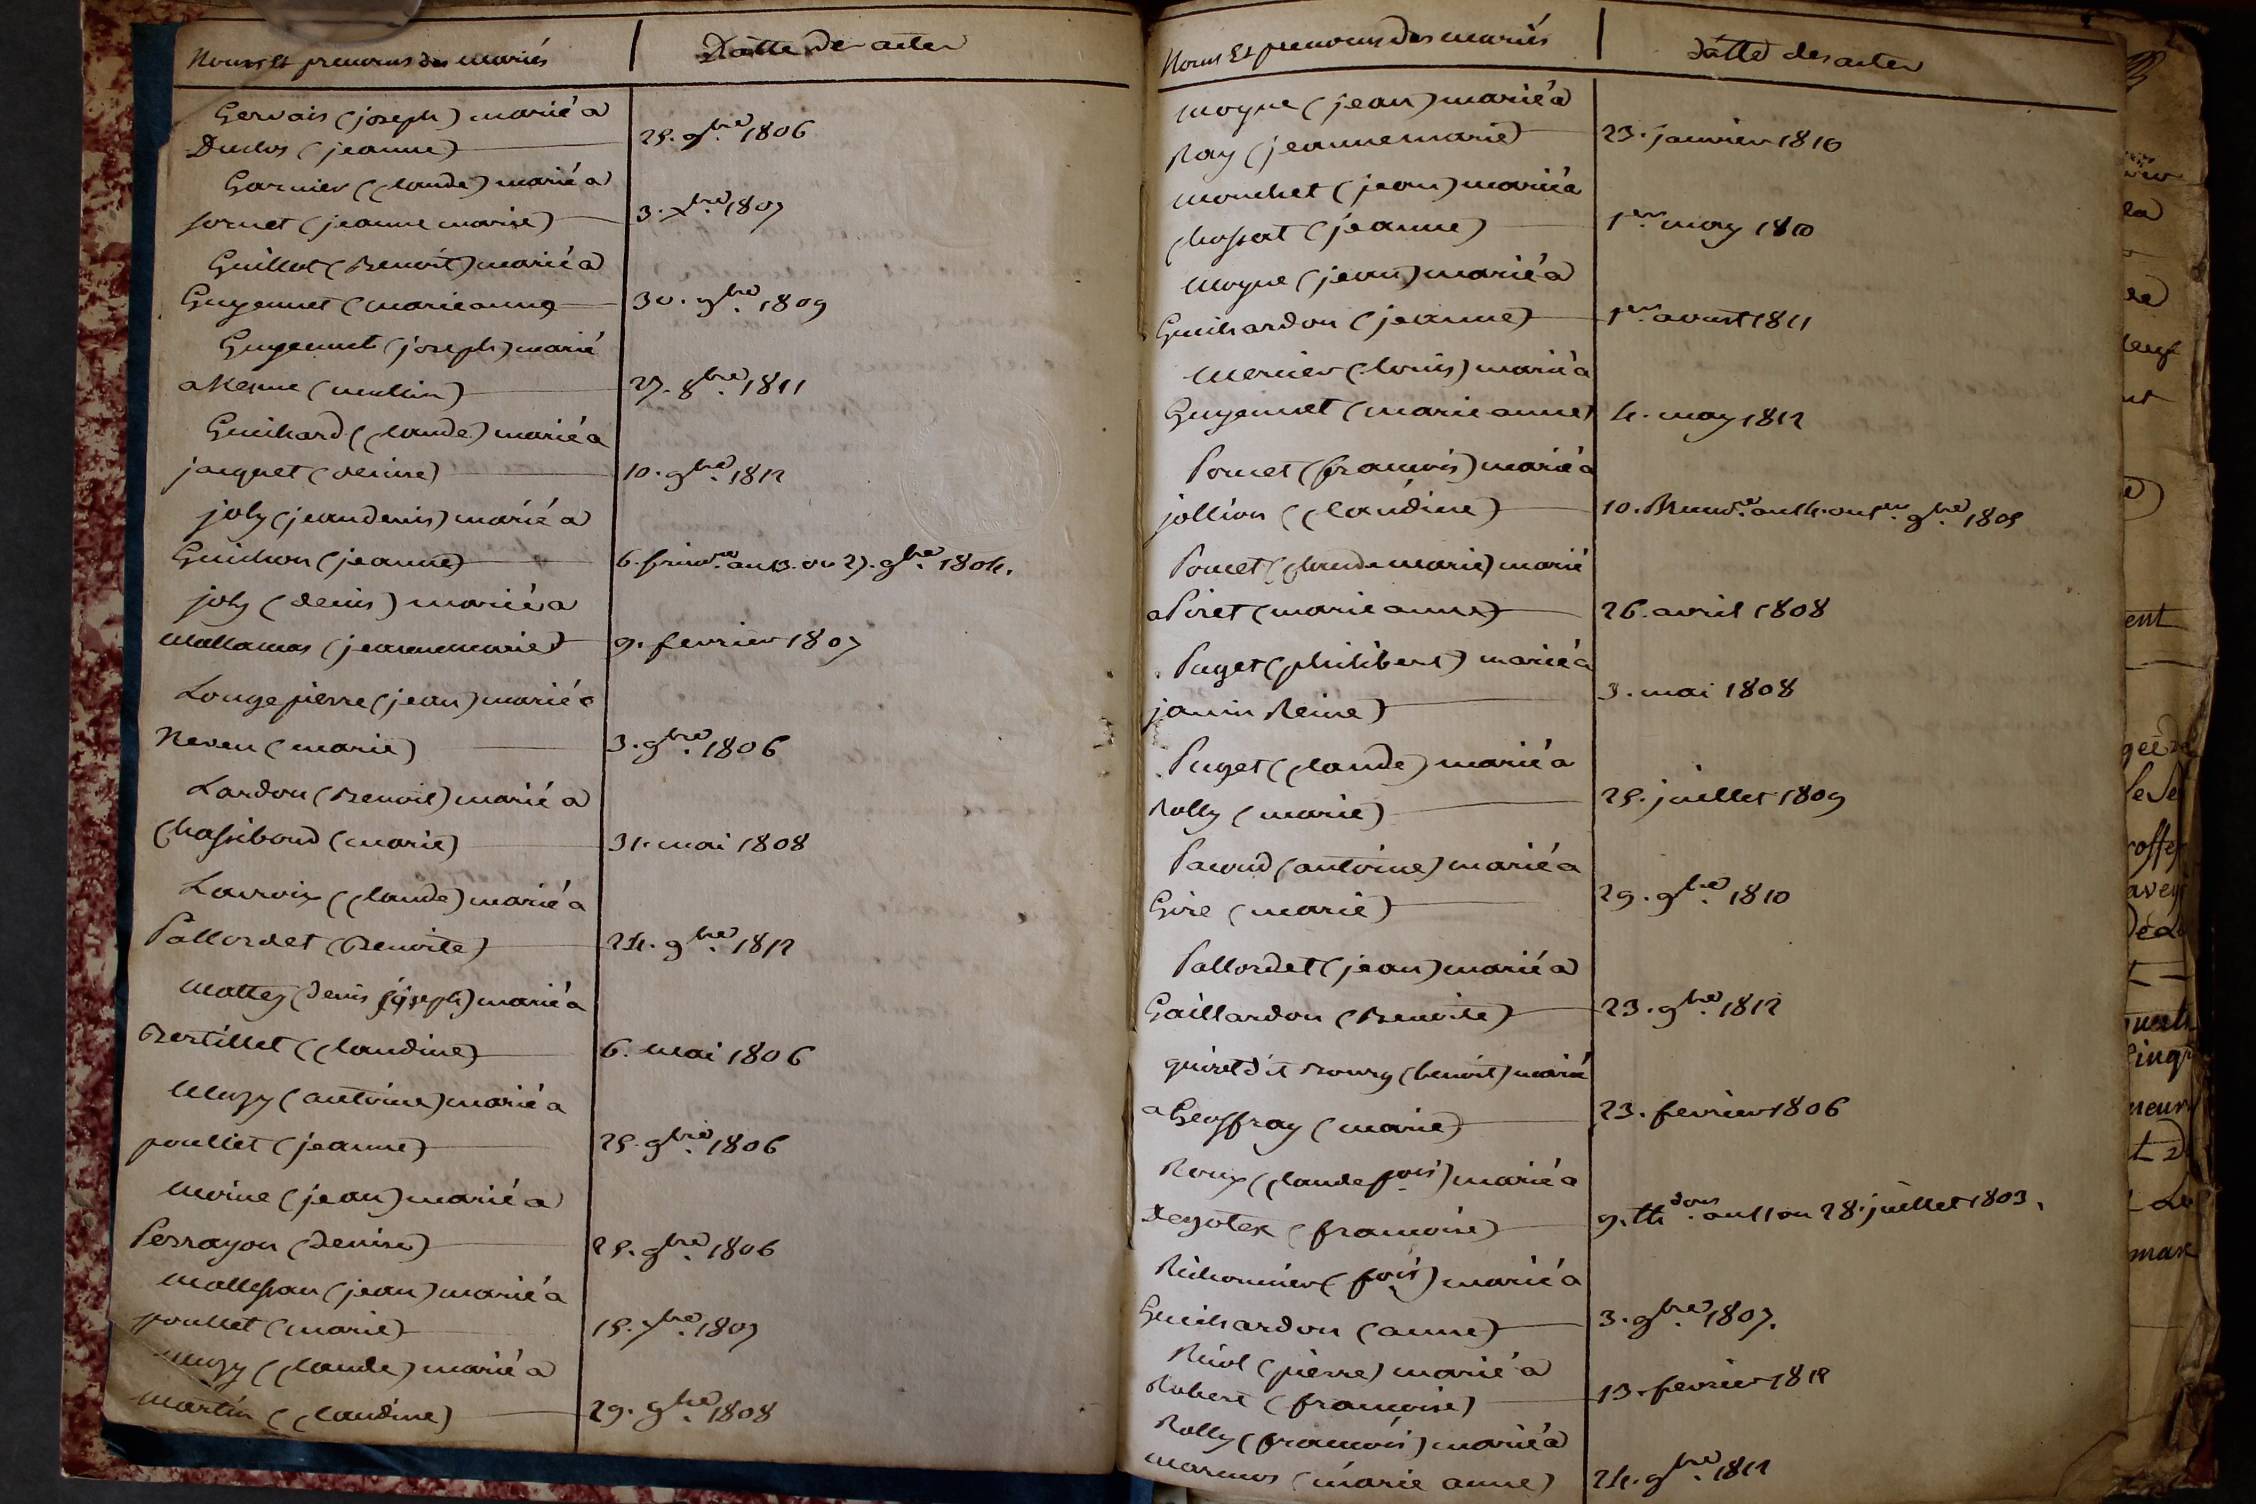 Noms et prenoms des mariés
Datte des actes
Gervais (joseph) marié a
Duclos (jeanne)
25. 9bre. 1806
Garnier (Claude) marié a
sornet (jeanne marie)
3. xbre. 1807
Guillot (Benoit) marié a
Guyennet (marie anne
30. 9bre. 1809
Guyennet (joseph) marié
a
27. 8bre. 1811
Guichard (Claude) marié a
jacquet (denise)
10. 9bre. 1812
joly (jean denis) marié a
Guichon (jeanne)
6. frimre. an 13. ou 27. 9bre. 1804.
joly (denis) marié a
(jeanne marie)
9. fevrier 1807
Longepierre (jean) marié a
Neven (marie)
3. 9bre. 1806
Lardon (Benoit) marié a
Chassiboud (marie)
31. mai 1808
Lacroix (Claude) marié a
Pallordet (Benoite)
24. 9bre. 1812
Mattey (denis joseph) marié a
Bertillet (Claudine)
6. mai 1806
Muzy (antoine) marié a
poullet (jeanne)
25. 9bre. 1806
Moine (jean) marié a
Perrayon (Denise)
25. 9bre. 1806
(jean) marié a
poullet (marie)
15. 7bre. 1807
Muzy (Claude) marié a
Martin (Claudine)
29. 9bre. 1808
Noms Et prenoms des mariés
datte des actes
Moyne (jean) marié a
Ray (jeanne marie)
23. janvier 1810
Mouchet (jean) marié a
Chossat (jeanne)
1er. may 1810
Moyne (jean) marié a
Guichardon (jeanne)
1er. aoust 1811
Mercier (Louis) marié a
Guyennet (marie anne)
4. may 1812
Poncet (francois) marié a
jollion (Claudine)
10. Brumre. an 14. ou 1er. 9bre. 1805
Poncet (Claude marie) marié
a Piret (marie anne)
26. avril 1808
Puget (philibert) marié a
janin Reine)
3. mai 1808
Puget (Claude) marié a
Rolly (marie)
25. juillet 1809
Pacoud (antoine) marié a
Gire (marie)
29. 9bre. 1810
Pallordet (jean) marié a
Gaillardon (Benoite)
23. 9bre. 1812
quiret dit (benoit) marié
a Geoffray (marie)
23. fevrier 1806
Roux (Claude fois) marié a
(francoise)
9. thdors. an 11 ou 28. juillet 1803.
Richonnier (fois) marié a
Guichardon (anne)
3. 9bre. 1807.
(pierre) marié a
Robert (francoise)
13. fevrier 1812
Rolly (francois) marié a
(marie anne)
24. 9bre. 1812